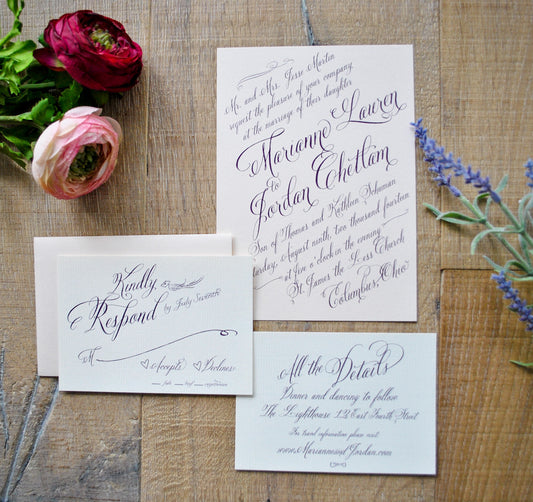 Mr. and Mrs. Jesse Martin
request the pleasure of your company
at the marriage of their daughter
Marianne Lauren
to
Jordan Chettam
Son of Thomas and Kathleen Schuman
Saturday, August ninth, two thousand fourteen
at five o'clock in the evening
St. James the Less Church
Columbus, Ohio
Kindly,
Respond
by July Seventh
M
Accepts Declines
fish beef vegetarian
All the Details
Dinner and dancing to follow
The Lighthouse 112 East Fourth Street
For travel information please visit
www.MarianneandJordan.com